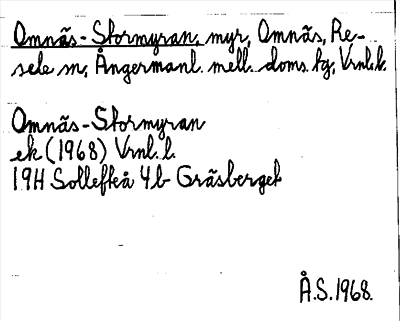 Omnäs-Stormyran, myr, Omnäs, Re-
sele sn, Ångermanl. mell. doms. tg, Vrnl.l.
Omnäs-Stormyran
ek (1968) Vrnl. l.
19H Sollefteå 4b Gräsberget
Å.S. 1968.